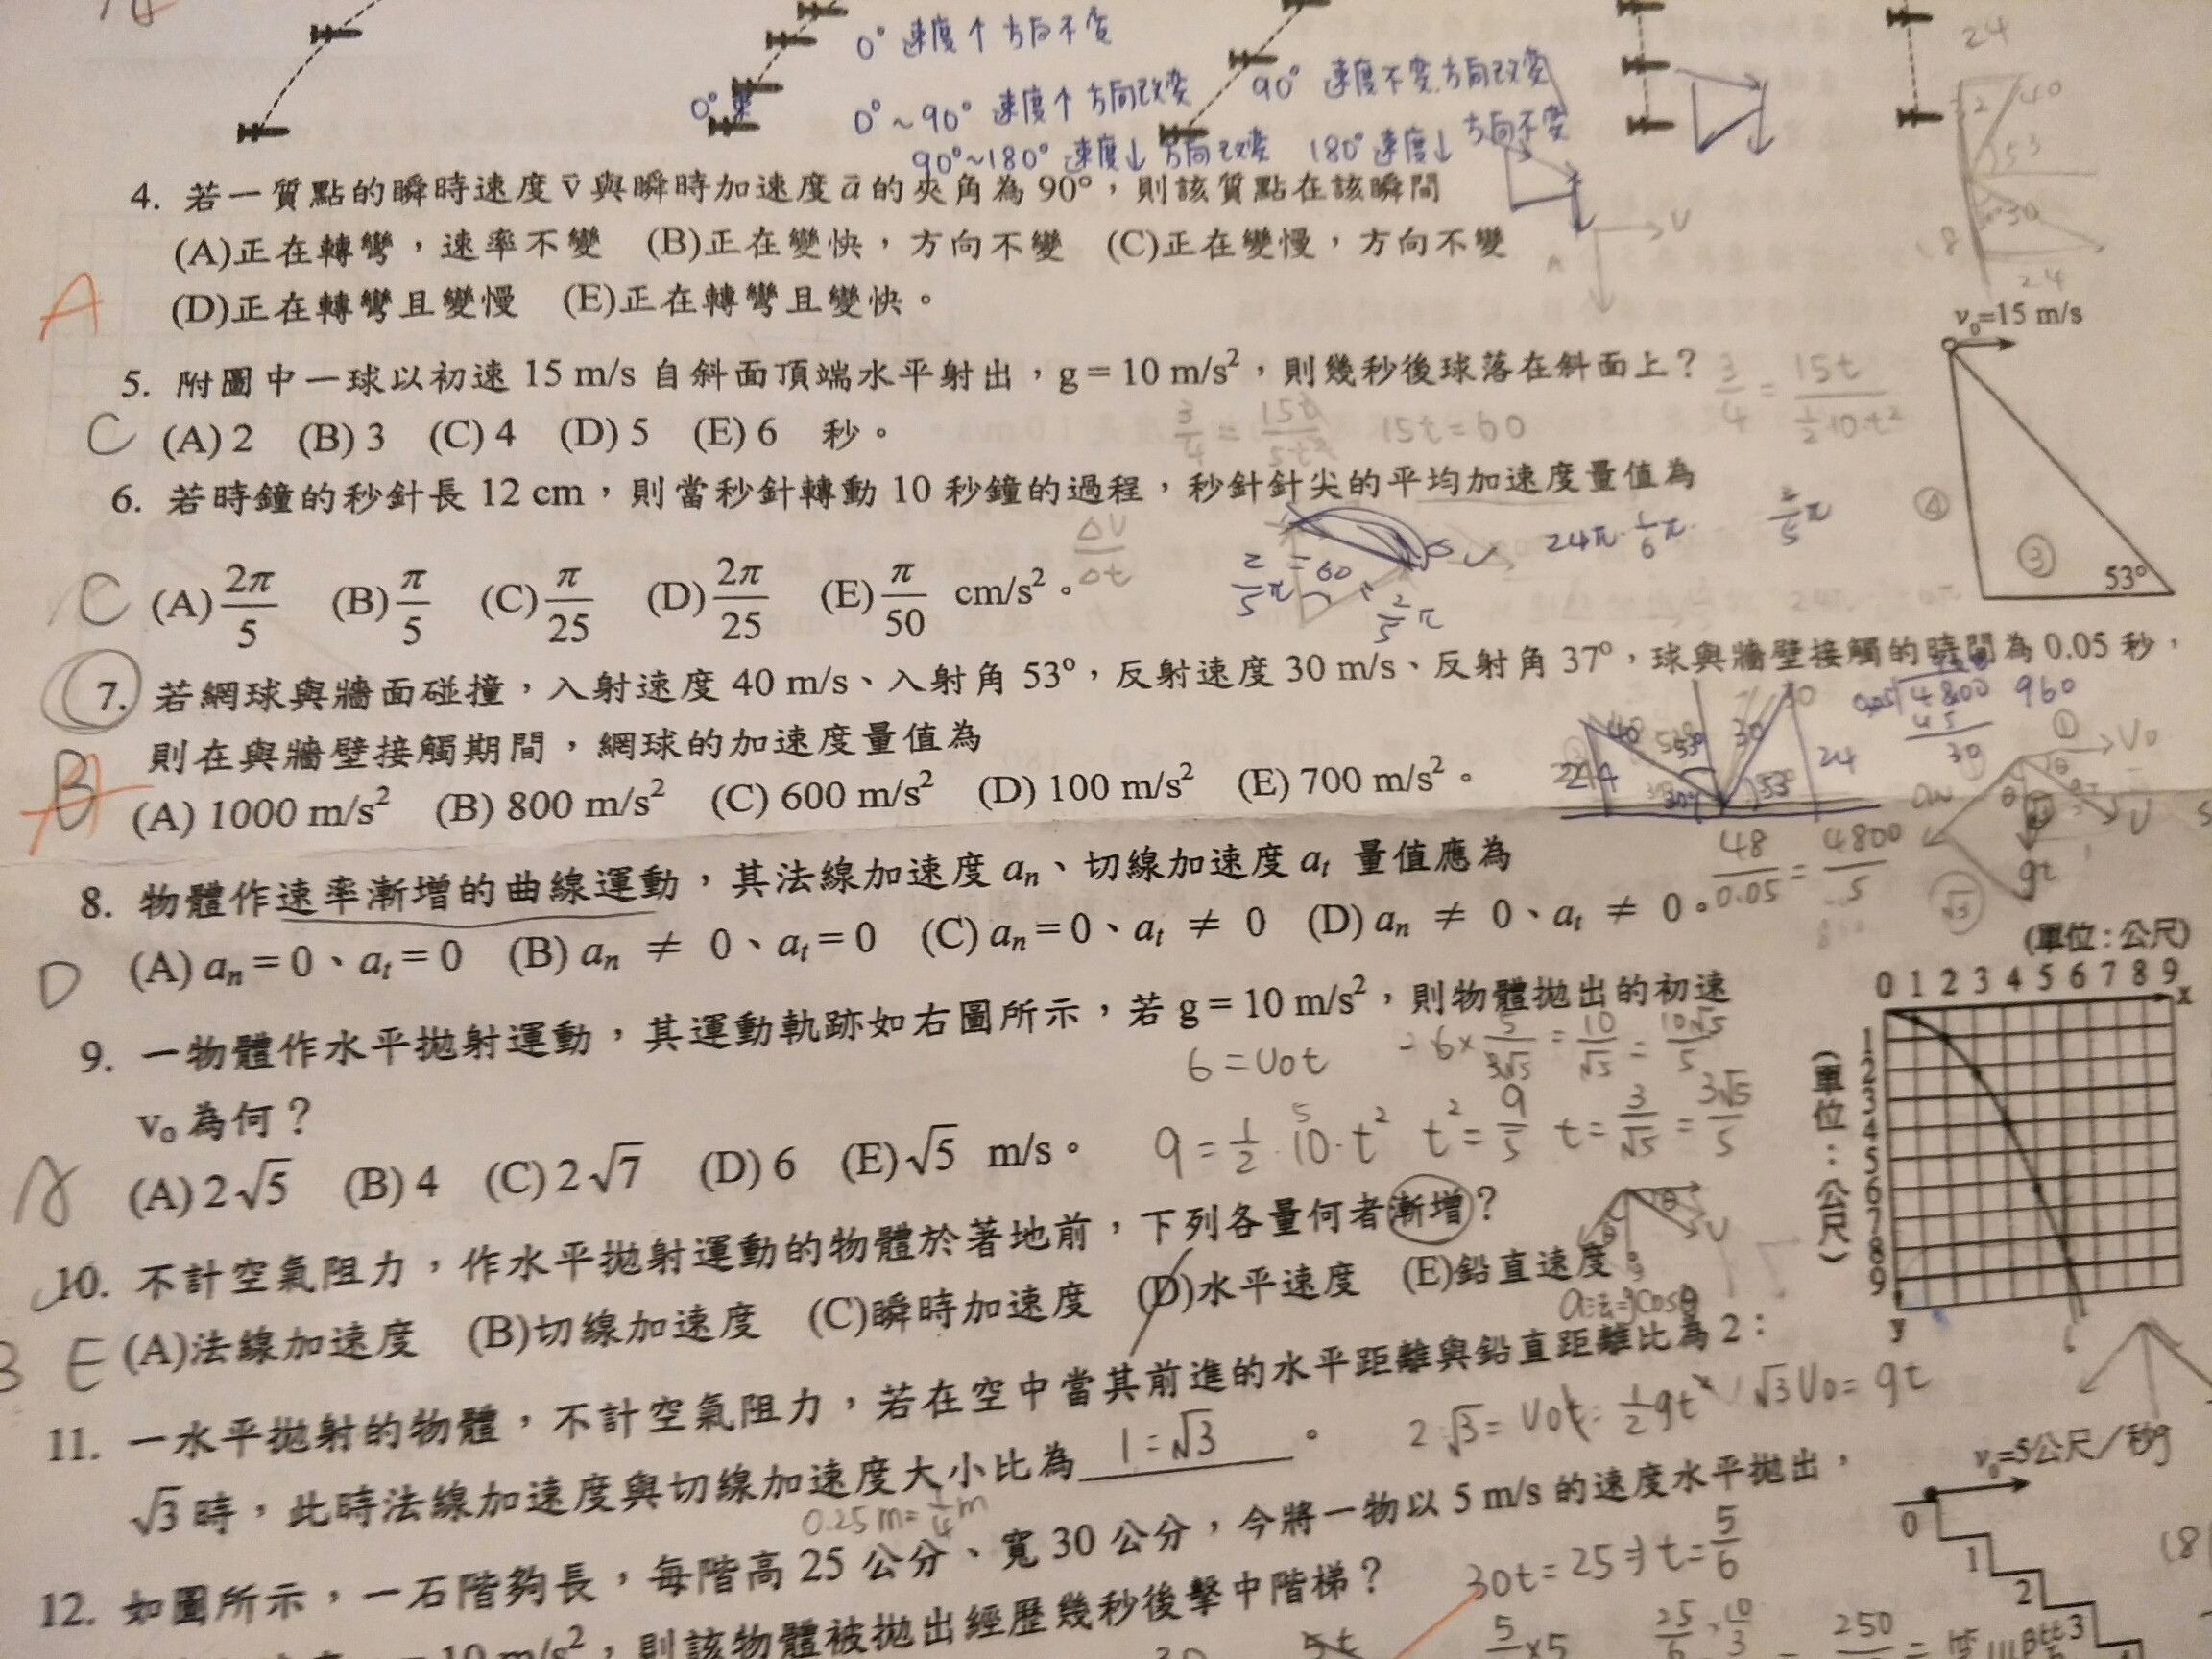 0° 速度↑ 方向不變
0°
0°~90° 速度↑ 方向改變
90° 速度不變.方向改變
90°~180° 速度↓ 方向改變
180° 速度↓ 方向不變
24
40
53
30
18
24
4. 若一質點的瞬時速度v̄與瞬時加速度ā的夾角為90°,則該質點在該瞬間
(A)正在轉彎,速率不變 (B)正在變快,方向不變 (C)正在變慢,方向不變
A
(D)正在轉彎且變慢 (E)正在轉彎且變快。
v₀=15 m/s
5. 附圖中一球以初速 15 m/s 自斜面頂端水平射出,g = 10 m/s²,則幾秒後球落在斜面上?
3/4 = 15t/(1/2·10·t²)
C
(A) 2 (B) 3 (C) 4 (D) 5 (E) 6 秒。
3/4 = 15t/5t²
15t=60
④
③
53°
6. 若時鐘的秒針長 12 cm,則當秒針轉動 10 秒鐘的過程,秒針針尖的平均加速度量值為
ΔV/Δt
2/5π
60
2/5π
24π·1/6π
2/5π
C
(A) 2π/5 (B) π/5 (C) π/25 (D) 2π/25 (E) π/50 cm/s²。
7. 若網球與牆面碰撞,入射速度 40 m/s、入射角 53°,反射速度 30 m/s、反射角 37°,球與牆壁接觸的時間為 0.05 秒,
則在與牆壁接觸期間,網球的加速度量值為
B
A
(A) 1000 m/s² (B) 800 m/s² (C) 600 m/s² (D) 100 m/s² (E) 700 m/s²。
40
53°
30
24
53°
4800
960
45
30
48/0.05 = 4800/5
8. 物體作速率漸增的曲線運動,其法線加速度 aₙ、切線加速度 aₜ 量值應為
D
(A) aₙ = 0、aₜ = 0 (B) aₙ ≠ 0、aₜ = 0 (C) aₙ = 0、aₜ ≠ 0 (D) aₙ ≠ 0、aₜ ≠ 0。
①
V₀
θ
θ
V
gt
√3
9. 一物體作水平拋射運動,其運動軌跡如右圖所示,若 g = 10 m/s²,則物體拋出的初速
v₀ 為何?
6 = V₀t
6× 5/3√5 = 10/√5 = 10√5/5
9 = 1/2·10·t² t² = 9/5 t = 3/√5 = 3√5/5
A
(A) 2√5 (B) 4 (C) 2√7 (D) 6 (E) √5 m/s。
(單位:公尺)
0 1 2 3 4 5 6 7 8 9
x
1
2
3
4
5
6
7
8
9
y
(單位:公尺)
6
10. 不計空氣阻力,作水平拋射運動的物體於著地前,下列各量何者漸增?
B E
(A)法線加速度 (B)切線加速度 (C)瞬時加速度 (D)水平速度 (E)鉛直速度。
θ
V
θ
g
11. 一水平拋射的物體,不計空氣阻力,若在空中當其前進的水平距離與鉛直距離比為 2:
√3 時,此時法線加速度與切線加速度大小比為 1:√3 。
2:√3 = V₀t : 1/2gt²
√3V₀ = gt
0.25m=1/4m
12. 如圖所示,一石階夠長,每階高 25 公分、寬 30 公分,今將一物以 5 m/s 的速度水平拋出,
10 m/s²,則該物體被拋出經歷幾秒後擊中階梯?
30t=25 ⇒ t=5/6
v₀=5公尺/秒
0
1
2
3